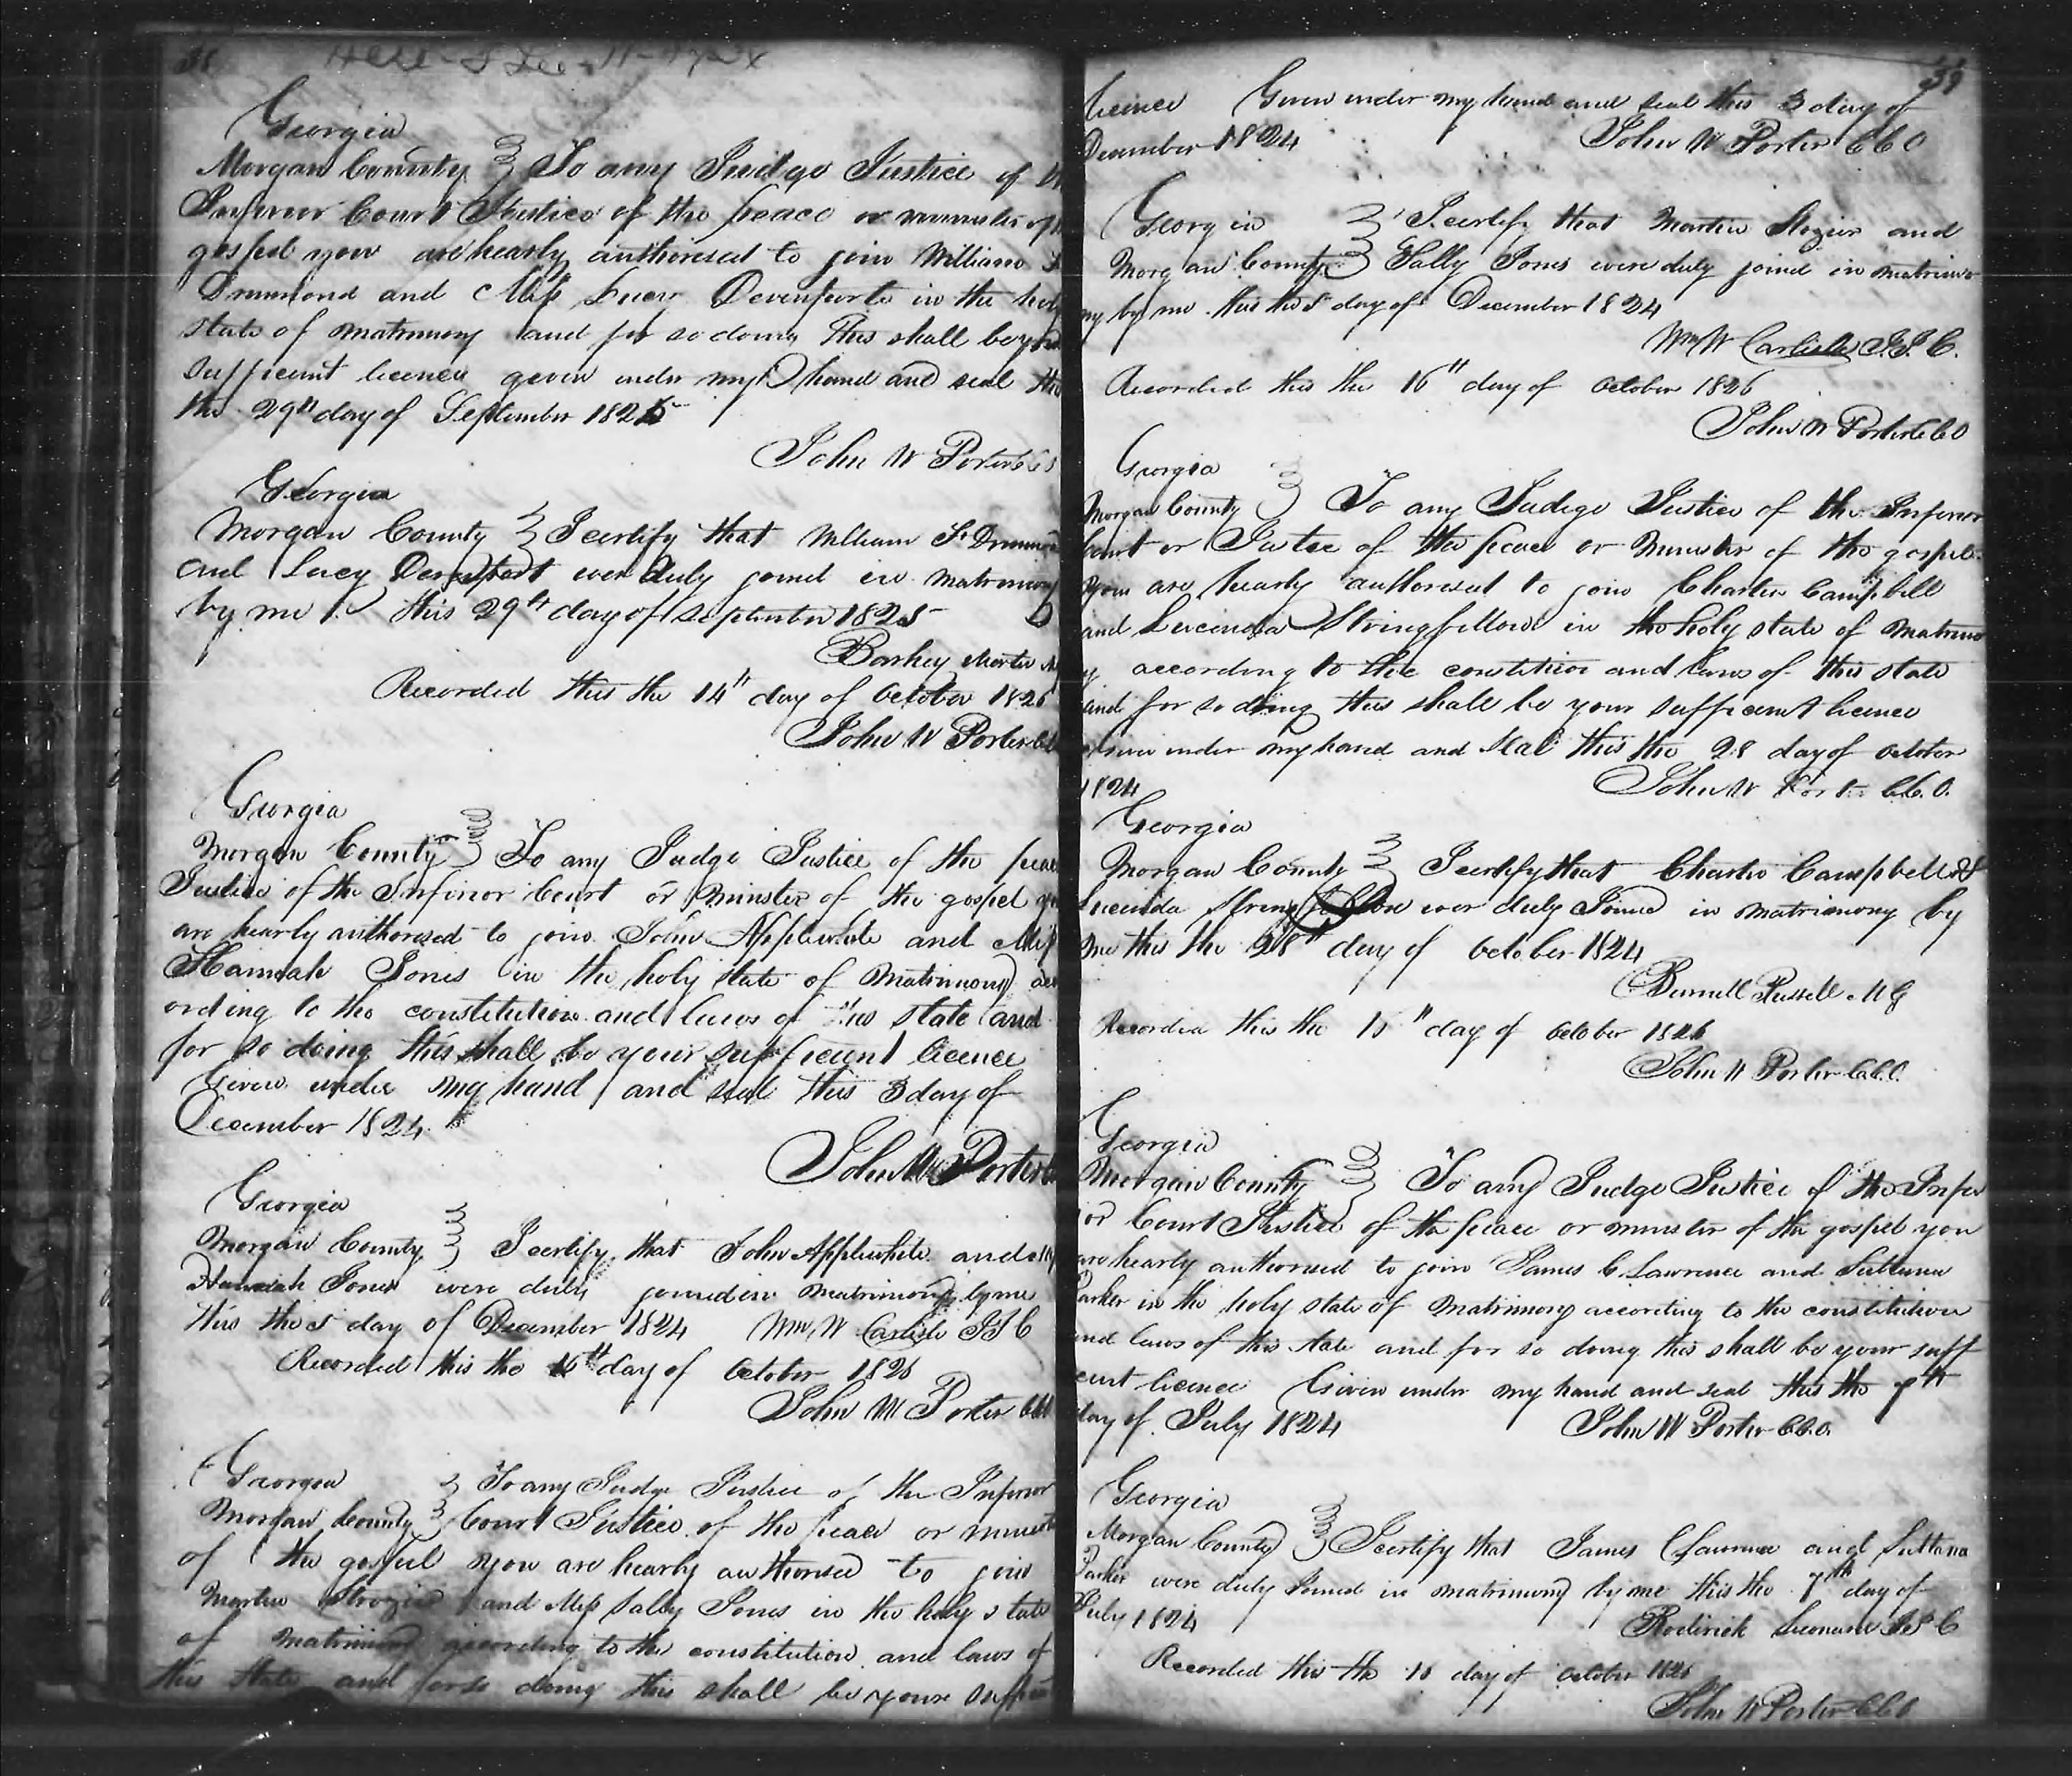 38
Georgia
Morgan County } To any Judge Justice of
Inferior Court Justice of the peace or minister of
gospel you are hearly authorised to join William
Drummond and Miss Lucy Devenporte in the holy
state of matrimony and for so doing This shall be your
sufficient licence given under my hand and seal this
the 29th day of September 1825
John W Porter CCO
Georgia
Morgan County } I certify that William S Drummond
and Lucy Devenport wer duly joined in matrimony
by me this 29th day of September 1825
Martin
Recorded this the 14th day of October 1826
John W Porter
Georgia
Morgan County } To any Judge Justice of the peace
Justice of the Inferior Court or minster of the gospel you
are hearly authorised to join John Applewhite and Miss
Hannah Jones in the holy state of Matrimony acc
ording to the constitution and laws of this state and
for so doing this shall be your sufficient licence
Given under my hand and seal this 3 day of
December 1824
John W Porter
Georgia
Morgan County } I certify that John Applewhite and
Hannah Jones were duly joined in matrimony by me
this the 5 day of December 1824 Wm W Carlisle JIC
Recorded this the 16th day of October 1826
John W Porter CCO
Georgia } To any Judge Justice of the Inferior
Morgan County } Court Justice of the peace or minister
of the gospel you are hearly authorised to join
Martin Strozier and Miss Sally Jones in the holy state
of matrimony according to the constitution and laws of
this state and for so doing this shall be your suffcient
39
licence Given under my hand and seal this 3 day of
December 1824 John W Porter CCO
Georgia } I certify that Martin Strozier and
Morgan County } Sally Jones were duly joined in matrimo
ny by me this the 5 day of December 1824
Wm W Carlisle J.I.C.
Recorded this the 16th day of October 1826
John W Porter CCO
Georgia
Morgan County } To any Judge Justice of the Inferior
Court or Justce of the peace or Minister of the gospel
you are hearly authorised to join Charles Campbell
and Lucinda Stringfellow in the holy state of matrimo
y according to the constition and laws of this state
and for so doing this shall be your sufficent licence
Given under my hand and seal this the 28 day of October
1824 John W Porter CC.O.
Georgia
Morgan County } I certify that Charles Campbell &
Lucinda Stringfellow wer duly Joined in matrimony by
me this the 28th day of October 1824
Burnell Russell MG
Recorded this the 16th day of October 1826
John W Porter C.C.O.
Georgia
Morgan County } To any Judge Justice of the Infer
ior Court Justice of the peace or minister of the gospel you
are hearly authorised to join James C Lawrence and Sultana
Parker in the holy state of matrimony according to the constitution
and laws of this state and for so doing this shall be your suff
cient licence Given under my hand and seal this the 7th
day of July 1824 John W Porter CC.O.
Georgia
Morgan County } I certify that James C Lawrence and Sultana
Parker were duly Joined in matrimony by me this the 7th day of
July 1824
Roderick Leonard JIC
Recorded this the 16 day of October 1826
John W Porter CCO